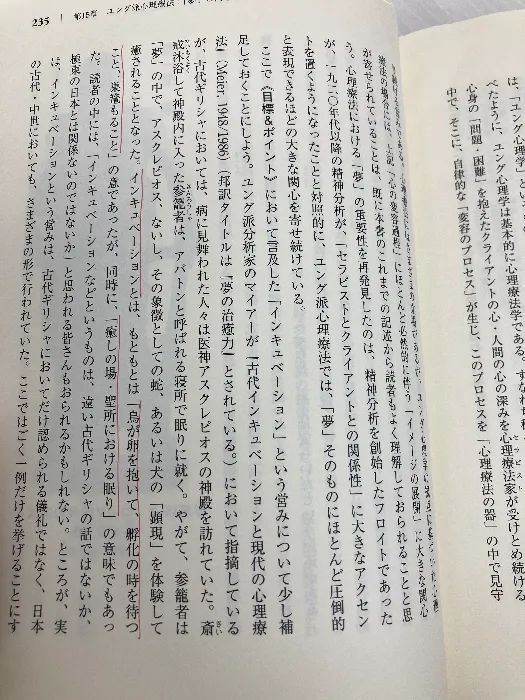 ユング心理学」とい
べたように、ユング心理学は基本的に心理療法学である。すなわち
心身の「問題・困難」を抱えたクライアントの心・人間の心の深みを心理療法家が受けとめ続ける
中で、そこに、自律的な「変容のプロセス」が生じ、このプロセスを「心理療法の器」の中で見守
235 第15章 ユング派心理療法
にほとんど必然的に伴う「イメージの展開」に大きな関心
が寄せられていることは、既に本書のこれまでの記述から読者もよく理解しておられることと思
う。心理療法における「夢」の重要性を再発見したのは、精神分析を創始したフロイトであった
が、一九二〇年代以降の精神分析が、「セラピストとクライアントとの関係性」に大きなアクセン
トを置くようになったことと対照的に、ユング派心理療法では、「夢」そのものにほとんど圧倒的
と表現できるほどの大きな関心を寄せ続けている。
ここで《目標&ポイント》において言及した「インキュベーション」という営みについて少し補
足しておくことにしよう。ユング派分析家のマイアーが『古代インキュベーションと現代の心理療
法』(Meier, 1948/1986)(邦訳タイトルは『夢の治癒力』とされている。)において指摘している
が、古代ギリシャにおいては、病に見舞われた人々は医神アスクレピオスの神殿を訪れていた。斎
戒沐浴して神殿内に入った参籠者は、アバトンと呼ばれる寝所で眠りに就く。やがて、参籠者は
「夢」の中で、アスクレピオス、ないし、その象徴としての蛇、あるいは犬の「顕現」を体験して
癒されることとなった。インキュベーションとは、もともとは「鳥が卵を抱いて、孵化の時を待つ
こと、巣籠もること」の意であったが、同時に、「癒しの場・聖所における眠り」の意味でもあっ
た。読者の中には、「インキュベーションなどというものは、遠い古代ギリシャの話ではないか、
極東の日本とは関係ないのではないか」と思われる皆さんもおられるかもしれない。ところが、実
は、インキュベーションという営みは、古代ギリシャにおいてだけ認められる儀礼ではなく、日本
の古代・中世においても、さまざまの形で行われていた。ここではごく一例だけを挙げることにす